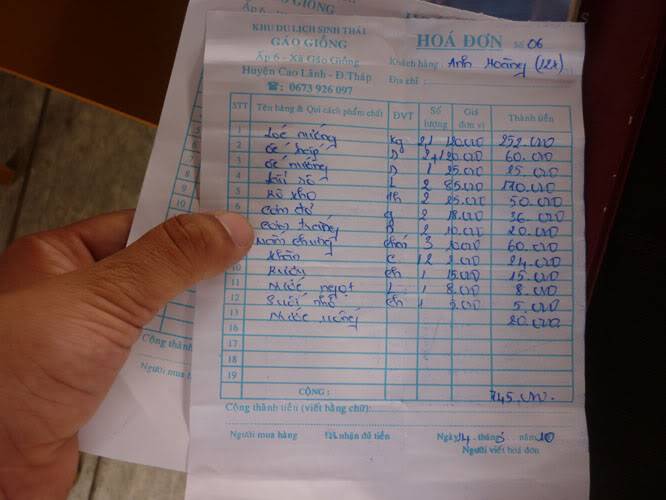 KHU DU LỊCH SINH THÁI
GÁO GIỒNG
Ấp 6 - Xã Gáo Giồng
Huyện Cao Lãnh - Đ.Tháp
☎: 0673 926 097
HOÁ ĐƠN Số 06
Khách hàng: Anh Hoàng (12x)
Địa chỉ:
STT Tên hàng & Qui cách phẩm chất ĐVT Số lượng Giá đơn vị Thành tiền
1 nướng kg 2,1 120.000 252.000
2 60.000
3 nướng 1 25.000 25.000
4 2 85.000 170.000
5 kho 2 25.000 50.000
6 Cơm 2 18.000 36.000
Cơm trắng 2 10.000 20.000
chung 3 60.000
Khăn c 12 2.000 24.000
10 Rượu ch 1 15.000 15.000
11 Nước ngọt L 1 8.000 8.000
12 Suối nhỏ ch 1 5.000 5.000
13 Nước uống 20.000
16
17
18
19
CỘNG: 745.000
Cộng thành tiền (viết bằng chữ):
Người mua hàng Đã nhận đủ tiền Ngày 14 tháng năm 10
Người viết hoá đơn
Cộng thành
Người mua h